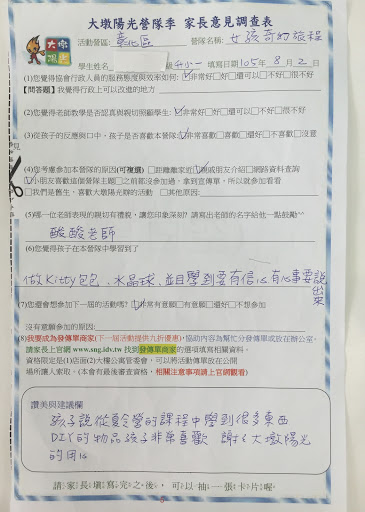 大墩陽光營隊季 家長意見調查表
大墩陽光
活動營區: 彰化區 營隊名稱: 女孩奇幻旅程
學生姓名 級 升小一 填寫日期 105年 8 月 2 日
(1)您覺得協會行政人員的服務態度與效率如何: ☑非常好□好□還可以□不好□很不好
【問答題】我覺得行政上可以改進的地方
(2)您覺得老師教學是否認真與親切照顧學生: ☑非常好□好□還可以□不好□很不好
(3)從孩子的反應與口中,孩子是否喜歡本營隊: ☑非常喜歡□喜歡□還好□不喜歡□沒意見
(4)您考慮參加本營隊的原因(可複選) □距離離家近☑親戚朋友介紹□網路資料查詢
☑小朋友喜歡這個營隊主題□之前都沒參加過,拿到宣傳單,所以就參加看看
□我們是舊生,喜歡大墩陽光辦的活動 □其他原因:
(5)哪一位老師表現的親切有禮貌,讓您印象深刻? 請寫出老師的名字給他一點鼓勵^^
酸酸老師
(6)您覺得孩子在本營隊中學習到了
做Kitty包包、水晶球、並且學到要有信心有心事要說出來
(7)您還會想參加下一屆的活動嗎? ☑非常有意願□有意願□還好□不想參加
沒有意願參加的原因:
(8)我要成為發傳單商家(下一屆活動提供九折優惠),協助內容為幫忙分發傳單或放在辦公室。
請家長上官網 www.sng.idv.tw 找到發傳單商家的選項填寫相關資料。
資格限定是(1)店面(2)大樓公寓管委會,可以將活動傳單放在公開
場所讓人索取。(本會有最後審查資格,相關注意事項請上官網觀看)
讚美與建議欄
孩子說從夏令營的課程中學到很多東西
DIY的物品孩子非常喜歡 謝謝大墩陽光
的用心
請家長填寫完之後,可以抽一張卡片喔